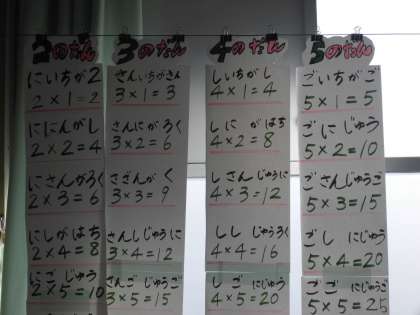 2のだん
にいちが2
2×1=2
ににんがし
2×2=4
にさんがろく
2×3=6
にしがはち
2×4=8
にご じゅう
2×5=10
3のだん
さんいちがさん
3×1=3
さんにがろく
3×2=6
さざんがく
3×3=9
さんしじゅうに
3×4=12
さんごじゅうご
3×5=15
4のだん
しいちがし
4×1=4
しにがはち
4×2=8
しさんじゅうに
4×3=12
ししじゅうろく
4×4=16
しごにじゅう
4×5=20
5のだん
ごいちがご
5×1=5
ごにじゅう
5×2=10
ごさんじゅうご
5×3=15
ごしにじゅう
5×4=20
ごごにじゅうご
5×5=25